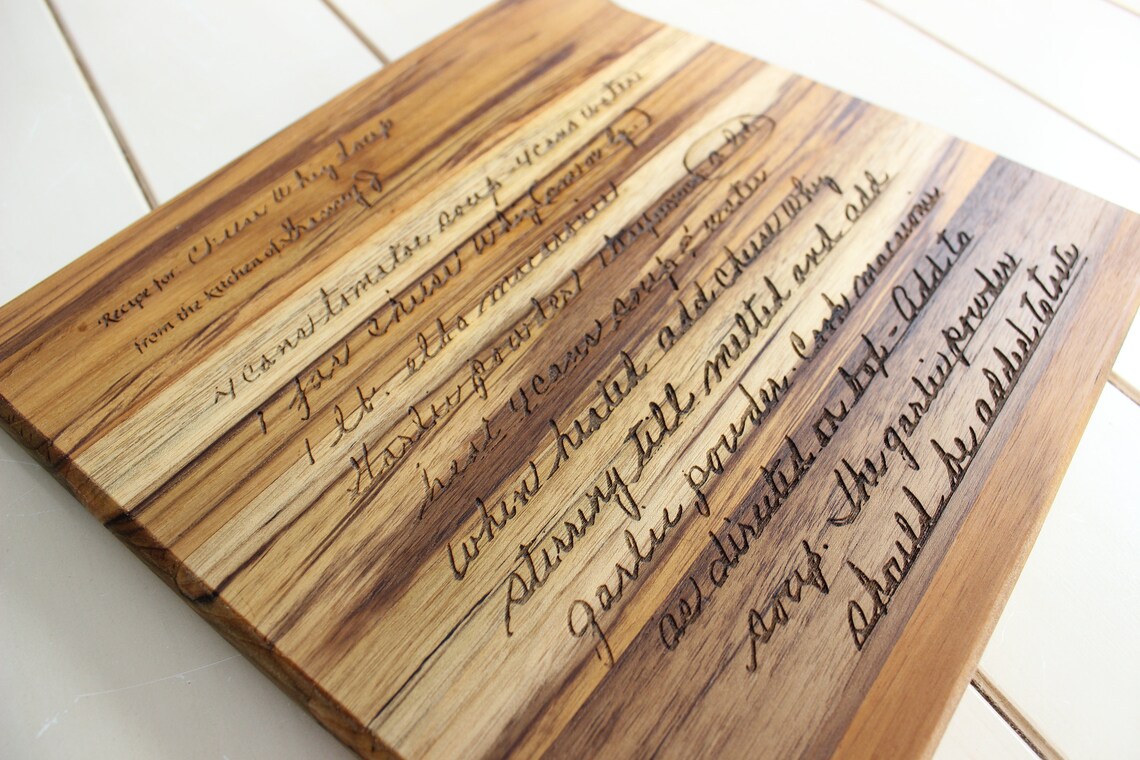 Recipe for Cheese Whiz Soup
from the kitchen of Grammy
4 cans tomatoe soup - 4 cans water
1 jar Cheese Whiz (any size)
1 lb. elbo macaroni
Garlic powder a lot
heat 4 cans soup & water
when heated add cheese Whiz
stirring till melted and add
garlic powder. Cook macaroni
as directed on box - Add to
soup. The garlic powder
should be added to taste